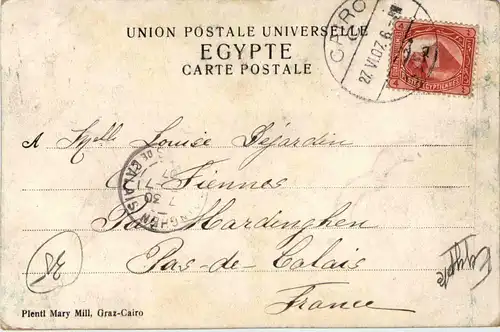 UNION POSTALE UNIVERSELLE
EGYPTE
CARTE POSTALE
CAIRO
27.VI.07.6
A Melle Louise Dejardin
à Fiennes
Par Hardinghen
Pas-de-Calais
France
S DE CALAIS
7 30
Egypte
Plentl Mary Mill, Graz-Cairo